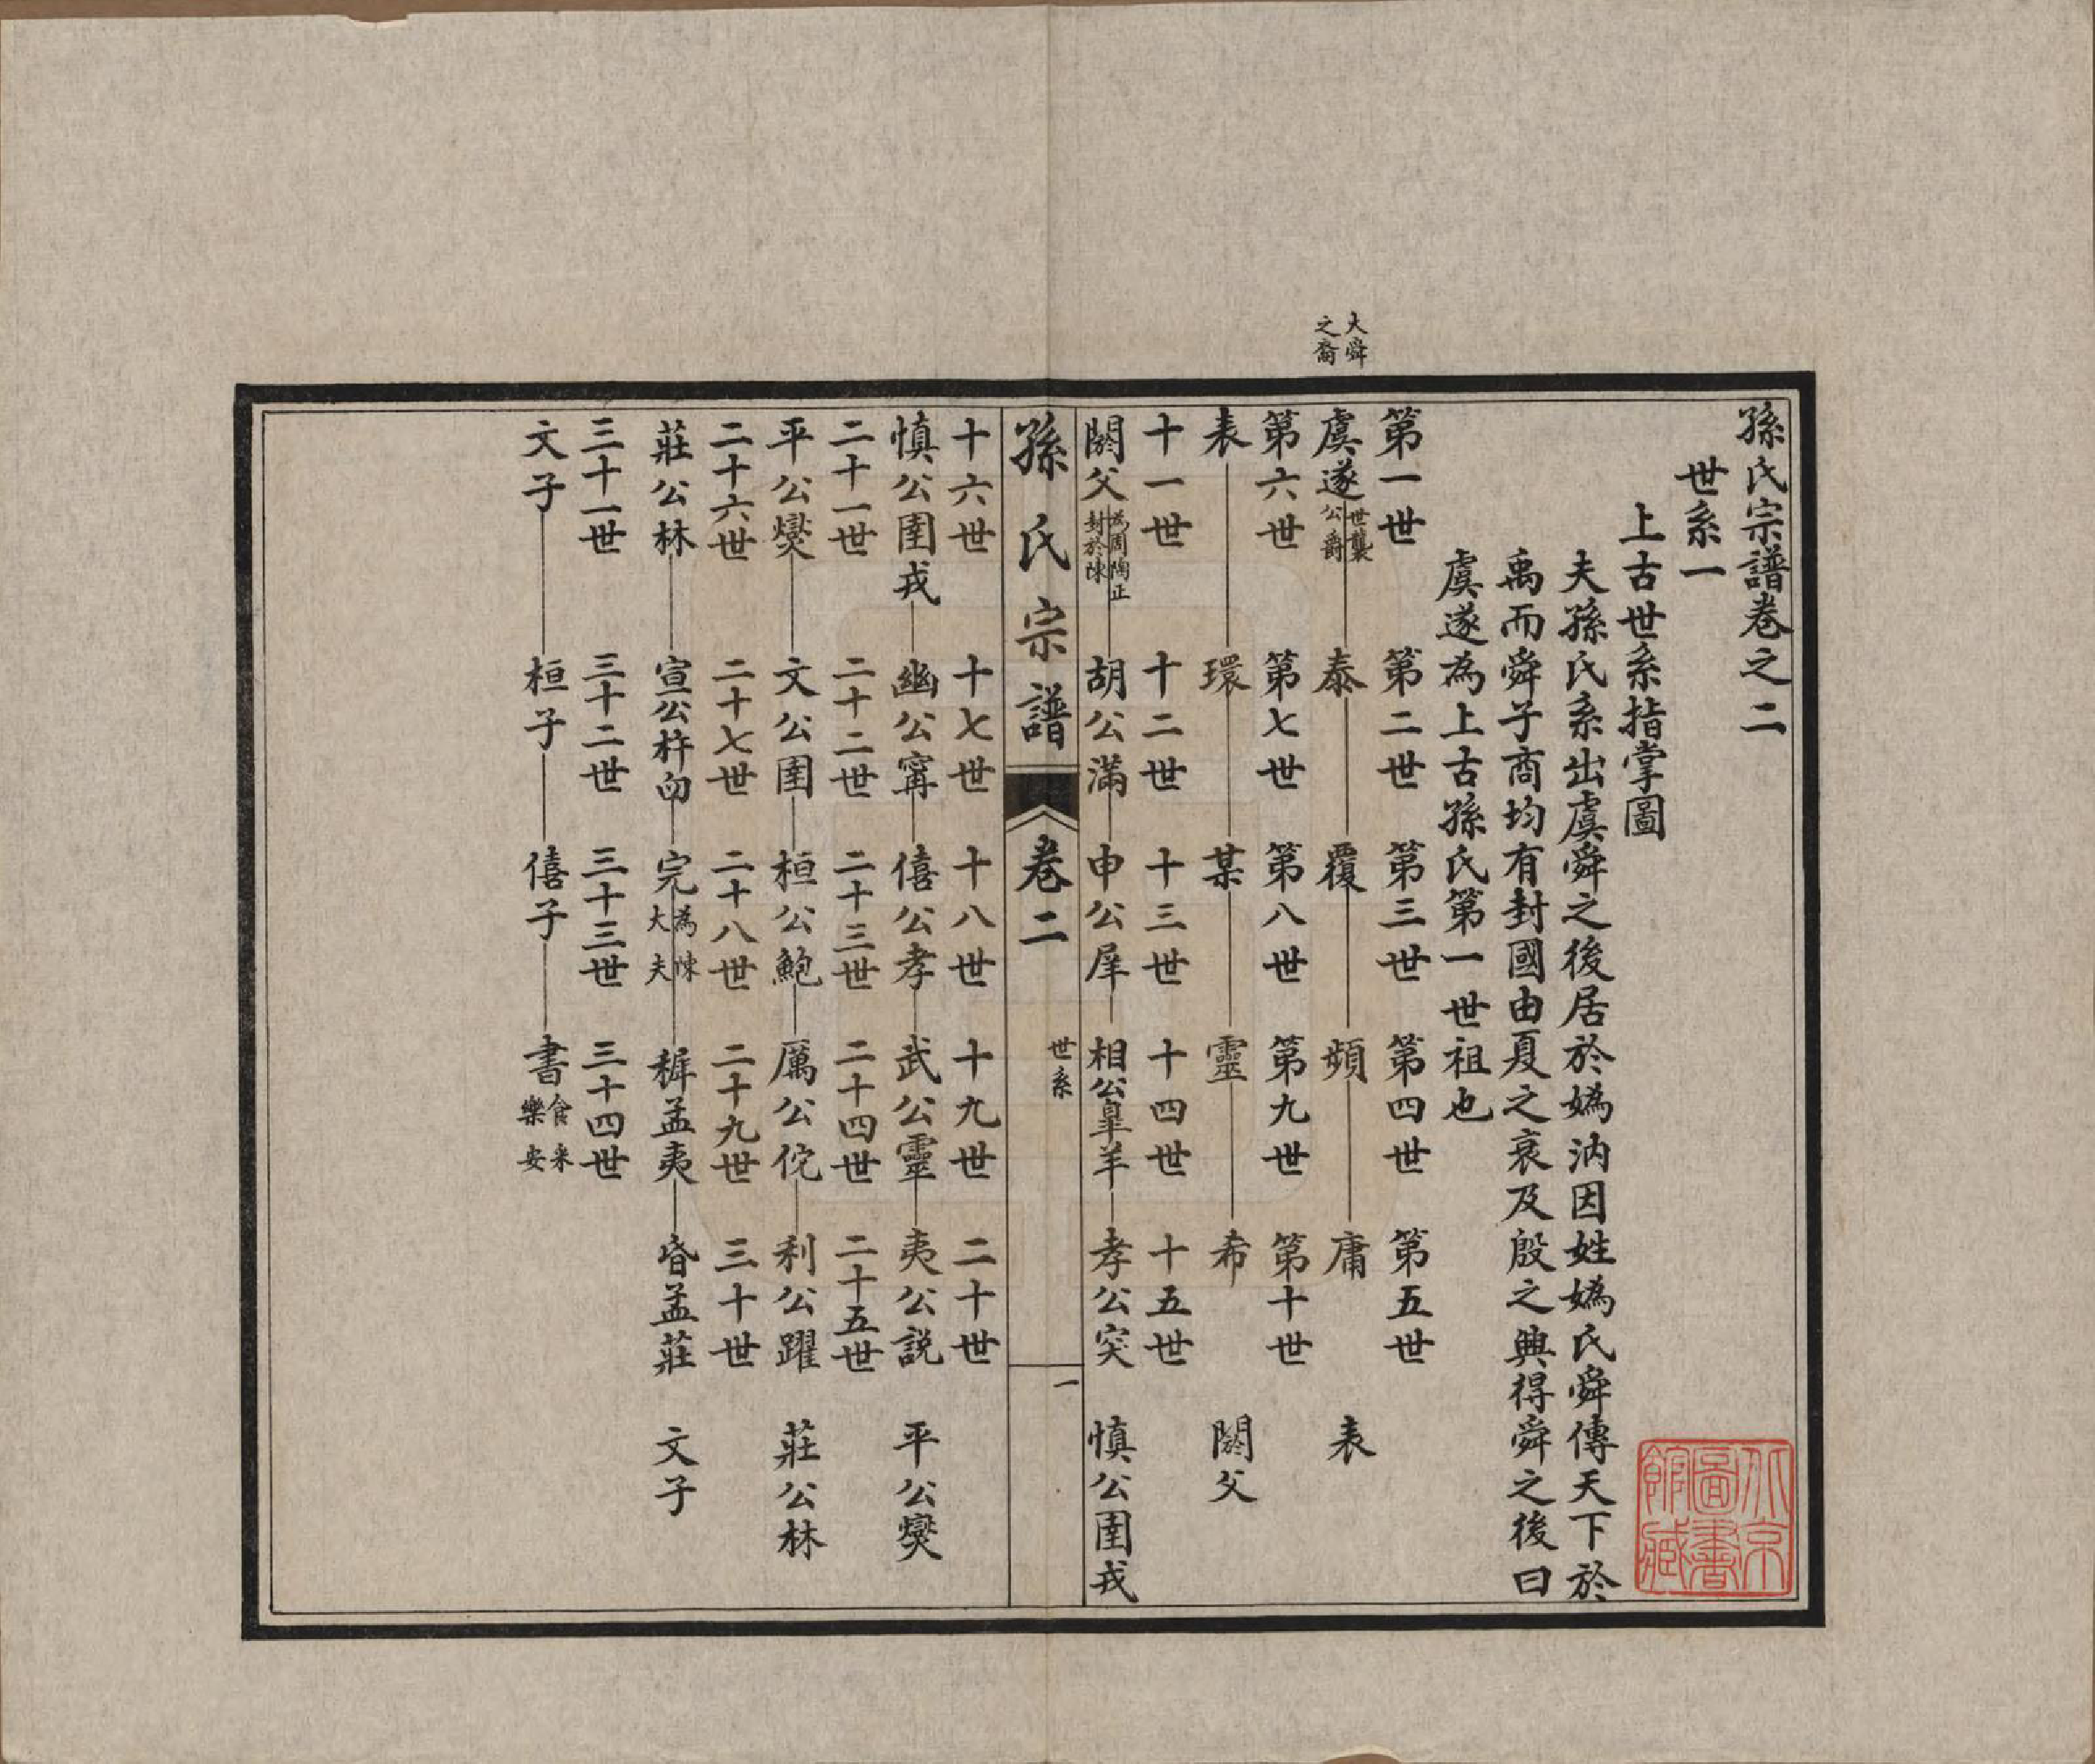 孫氏宗譜卷之二
世系一
上古世系指掌圖
夫孫氏系出虞舜之後居於媯汭因姓媯氏舜傳天下於
禹而舜子商均有封國由夏之衰及殷之興得舜之後曰
虞遂為上古孫氏第一世祖也
第一世 第二世 第三世 第四世 第五世
大舜
之裔
虞遂 世襲公爵 泰 覆 頻 庸 表
第六世 第七世 第八世 第九世 第十世
表 環 某 靈 希 閼父
十一世 十二世 十三世 十四世 十五世
閼父 為周陶正封於陳 胡公滿 申公犀 相公皐羊 孝公突 慎公圉戎
孫氏宗譜 卷二 世系 一
十六世 十七世 十八世 十九世 二十世
慎公圉戎 幽公甯 僖公孝 武公靈 夷公説 平公燮
二十一世 二十二世 二十三世 二十四世 二十五世
平公燮 文公圉 桓公鮑 厲公佗 利公躍 莊公林
二十六世 二十七世 二十八世 二十九世 三十世
莊公林 宣公杵臼 完 為陳大夫 穉孟夷 昏孟莊 文子
三十一世 三十二世 三十三世 三十四世
文子 桓子 僖子 書 食采樂安
北京圖書館藏